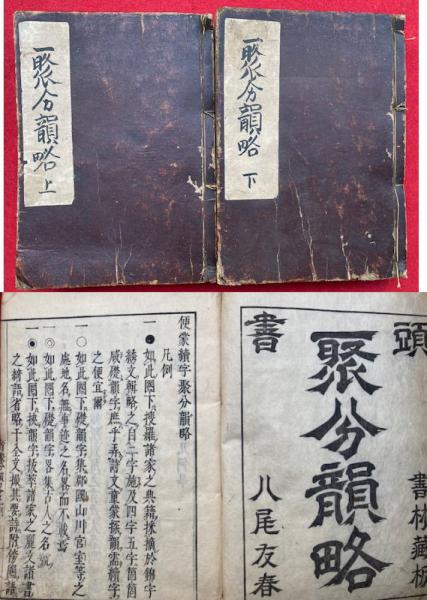 聚分韻略 上
聚分韻略 下
頭書
聚分韻略
書林藏板
八尾友春
便蒙續字聚分韻略
凡例
一●如此圈下搜羅諸家之典籍採摘於錦字
繡文輯略之自二字施及四字五字箇箇
礎韻字庶乎弄詩文童蒙採韻需續字
之便宜爾
一○如此圈下礎韻字集鄉國山川宮室等之
處地名無事迹之名畧而不載焉
一◎如此圈下礎韻字畧集古人之名
如此圈下挨韻字拔萃諸家之麗文諸書
之綺語省略于全文撮其要